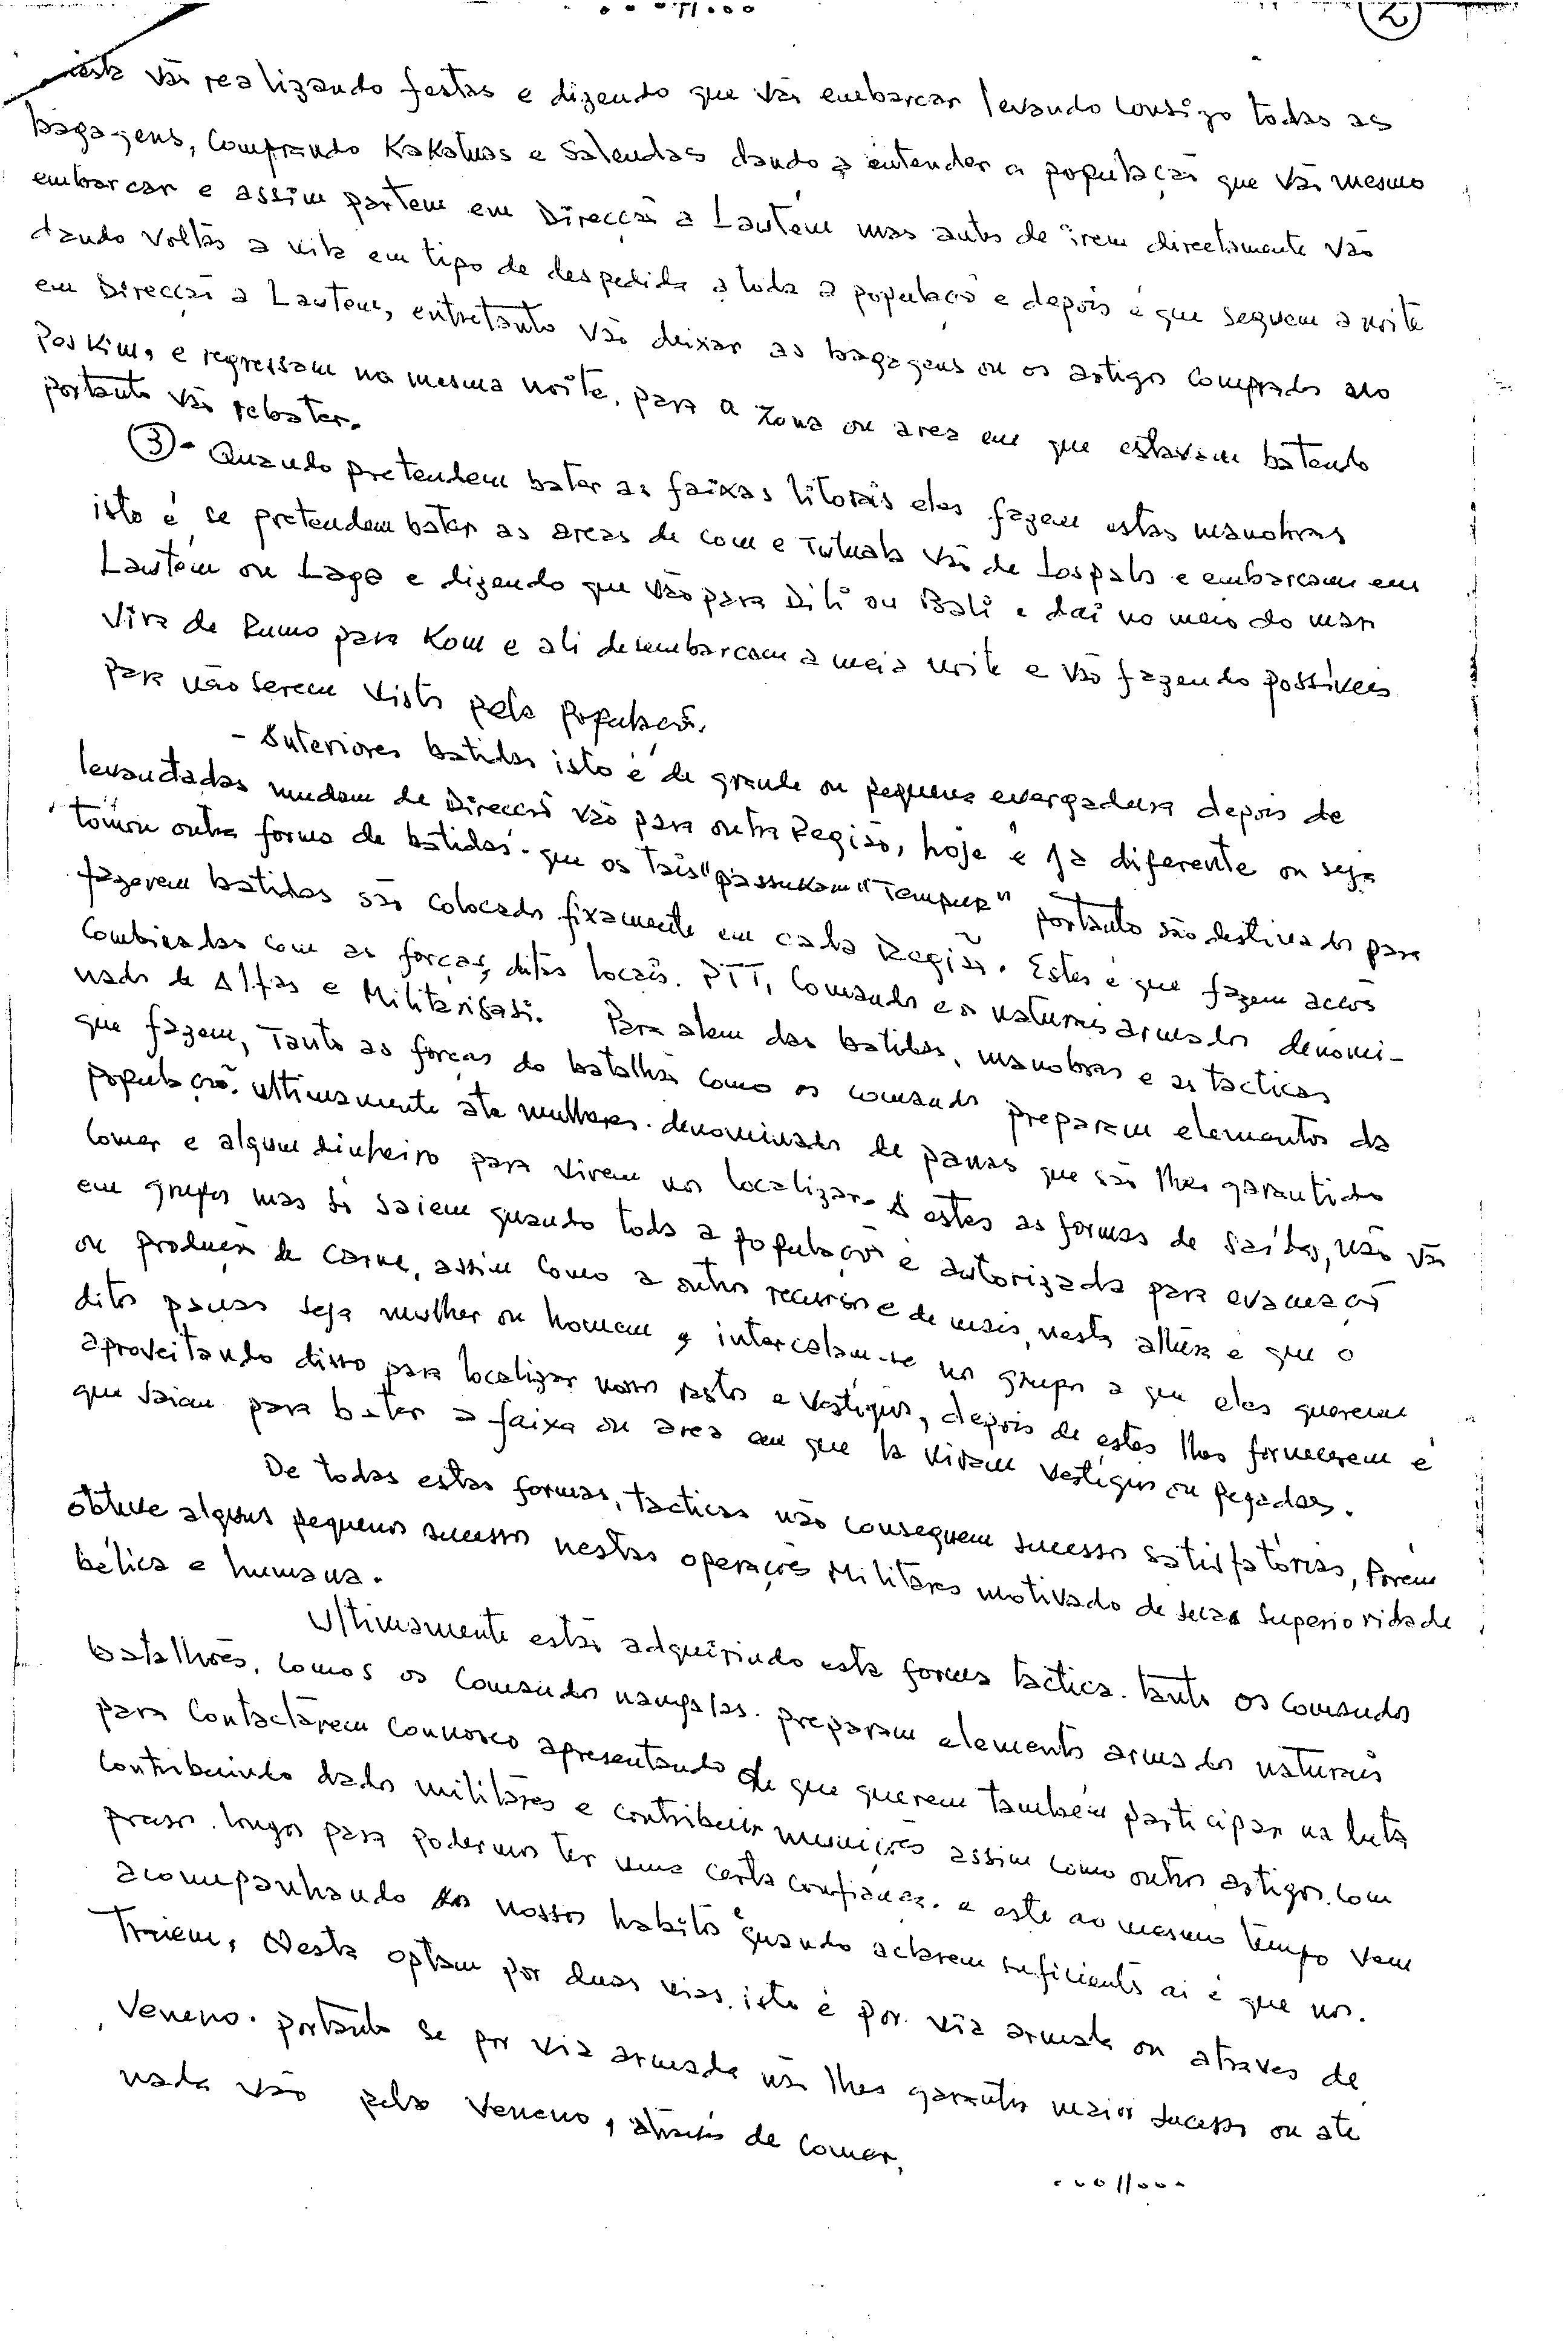 ...//...
2
nesta vão realizando festas e dizendo que vão embarcar levando consigo todas as
bagagens, comprando Kakatuas e Salendas dando a entender a população que vão mesmo
embarcar e assim partem em Direcção a Lautém mas antes de irem directamente vão
dando voltas a vila em tipo de despedida a toda a população e depois é que seguem a noite
em Direcção a Lautem, entretanto vão deixar as bagagens ou os artigos comprados ao
Poskim, e regressam na mesma noite, para a zona ou area em que estavam batendo
portanto vão rebater.
3 - Quando pretendem bater as faixas litorais eles fazem estas manobras
isto é, se pretendem bater as areas de com e Tutuala vão de Lospalos e embarcam em
Lautém ou Laga e dizendo que vão para Dili ou Bali e daí no meio do mar
vira de Rumo para Kom e ali desembarcam a meia noite e vão fazendo possíveis
para não serem vistos pela população.
- Anteriores batidas isto é de grande ou pequena envergadura depois de
levantadas mudam de Direcção vão para outra Região, hoje é já diferente ou seja
tomou outra forma de batidas. que os tais "passukam "Tempur" portanto são destinados para
fazerem batidas são colocados fixamente em cada Região. Estes é que fazem acções
combinadas com as forças, ditas locais. PTT, Comandos e os naturais armados denomi-
nados de Alfas e Militarisasi. Para alem das batidas, manobras e as tacticas
que fazem, Tanto as forças do batalhão como os comandos preparam elementos da
população. Ultimamente ate mulheres. denominados de panas que são lhes garantidos
comer e algum dinheiro para virem nos localizar. A estes as formas de saídas, não vão
em grupos mas só saiem quando toda a população é autorizada para
ou produção de carne, assim como a outros recursos e de mais, nesta altura é que o
ditos panas seja mulher ou homem, intercalam-se nos grupos a que eles querem
aproveitando disso para localizar nossos rastos e vestígios, depois de estes lhes fornecerem é
que saiem para bater a faixa ou area em que la viram vestígios ou pegadas.
De todas estas formas, tacticas não conseguem sucessos satisfatórias, Porém
obteve alguns pequenos sucessos nestas operações Militares motivado de suas superioridade
bélica e humana.
Ultimamente estão adquirindo esta forma tactica. tanto os comandos
batalhões, comos os Comandos nangalas. preparam elementos armados naturais
para contactarem connosco apresentando de que querem também participar na luta
contribuindo dados militares e contribuir munições assim como outros artigos. com
prasos longos para podermos ter uma certa confiança. e este ao mesmo tempo vem
acompanhando os nossos habitos quando acharem suficientes ai é que nos
Traiem, Nesta optam por duas vias. isto é por via armada ou atraves de
veneno. portanto se por via armada não lhes garantir maior sucesso ou até
nada vão pelo veneno, através de comer.
...//...